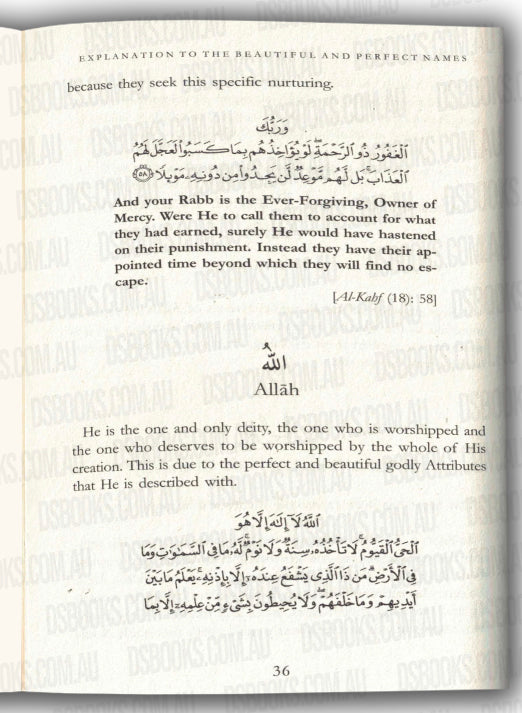 EXPLANATION TO THE BEAUTIFUL AND PERFECT NAMES
because they seek this specific nurturing.
وَرَبُّكَ
ٱلْغَفُورُ ذُو ٱلرَّحْمَةِ ۖ لَوْ يُؤَاخِذُهُم بِمَا كَسَبُوا۟ لَعَجَّلَ لَهُمُ
ٱلْعَذَابَ ۚ بَل لَّهُم مَّوْعِدٌ لَّن يَجِدُوا۟ مِن دُونِهِۦ مَوْئِلًا ﴿٥٨﴾
And your Rabb is the Ever-Forgiving, Owner of
Mercy. Were He to call them to account for what
they had earned, surely He would have hastened
on their punishment. Instead they have their ap-
pointed time beyond which they will find no es-
cape.
[Al-Kahf (18): 58]
اللّٰهُ
Allāh
He is the one and only deity, the one who is worshipped and
the one who deserves to be worshipped by the whole of His
creation. This is due to the perfect and beautiful godly Attributes
that He is described with.
ٱللَّهُ لَآ إِلَـٰهَ إِلَّا هُوَ
ٱلْحَىُّ ٱلْقَيُّومُ ۚ لَا تَأْخُذُهُۥ سِنَةٌ وَلَا نَوْمٌ ۚ لَّهُۥ مَا فِى ٱلسَّمَـٰوَٰتِ وَمَا
فِى ٱلْأَرْضِ ۗ مَن ذَا ٱلَّذِى يَشْفَعُ عِندَهُۥٓ إِلَّا بِإِذْنِهِۦ ۚ يَعْلَمُ مَا بَيْنَ
أَيْدِيهِمْ وَمَا خَلْفَهُمْ ۖ وَلَا يُحِيطُونَ بِشَىْءٍ مِّنْ عِلْمِهِۦٓ إِلَّا بِمَا
36
DSBOOKS.COM.AU